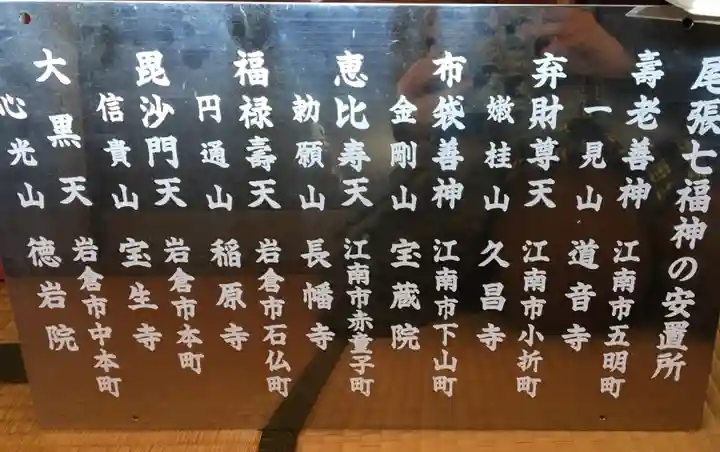 尾張七福神の安置所
壽老善神 江南市五明町
一見山 道音寺
弃財尊天 江南市小折町
嫩桂山 久昌寺
布袋善神 江南市下山町
金剛山 宝蔵院
恵比寿天 江南市赤童子町
勅願山 長幡寺
福禄壽天 岩倉市石仏町
円通山 稲原寺
毘沙門天 岩倉市本町
信貴山 宝生寺
大黒天 岩倉市中本町
心光山 徳岩院